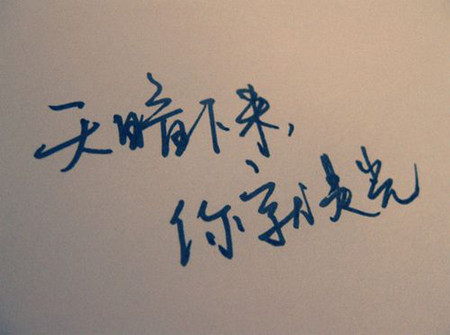 天暗下来，
你就是光